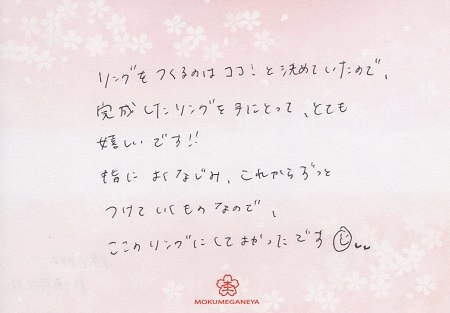 リングをつくるのはココ！と決めていたので、
完成したリングを手にとって、とても
嬉しいです!!
指によくなじみ、これからずっと
つけていくものなので、
ここのリングにしてよかったです
MOKUMEGANEYA